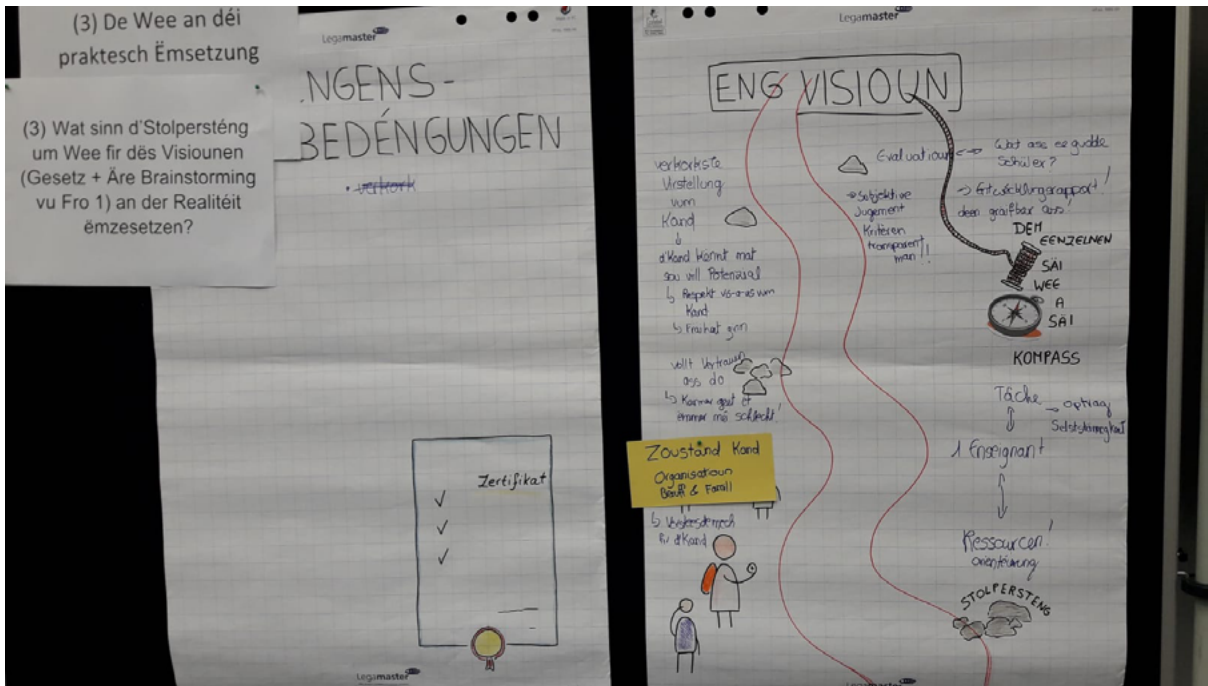 (3) De Wee an déi
praktesch Ëmsetzung
(3) Wat sinn d'Stolpersténg
um Wee fir dës Visiounen
(Gesetz + Äre Brainstorming
vu Fro 1) an der Realitéit
ëmzesetzen?
Legamaster
NGENS-
BEDÉNGUNGEN
• verkork
Zertifikat
Legamaster
Legamaster
ENG VISIOUN
verkorkste
Virstellung
vum
Kand
d'Kand kënnt mat
sou vill Potenzial
Respekt vis-à-vis vum
Kand
Fraiheet ginn
vollt Vertrauen
ass do
Kanner geet et
ëmmer méi schlecht!
Zoustand Kand
Organisatioun
Beruff & Famill
fir d'Kand
Evaluatioun
Wat ass e gudde
Schüler?
Subjektive
Jugement
Kritèren
transparent
man!!
Entwécklungsrapport!
deen graifbar ass!
DEM
EENZELNEN
SÄI
WEE
A
SÄI
KOMPASS
Täche
Optrag
Selbstännegkeet
1 Enseignant
Ressourcen!
orientéierung
STOLPERSTENG
Legamaster